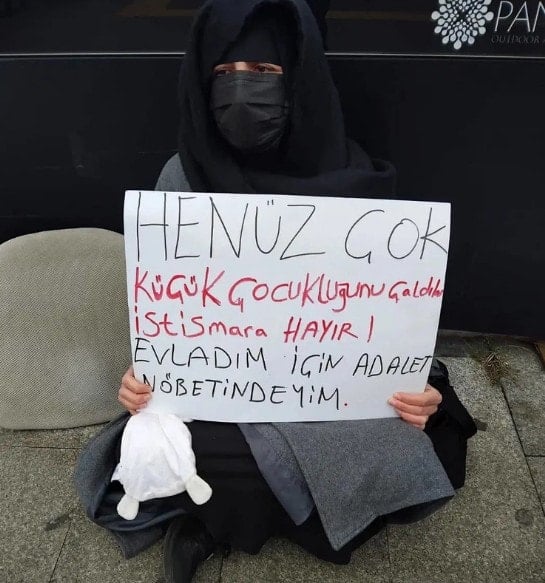 PAN
OUTDOOR
HENÜZ ÇOK
KÜÇÜK ÇOCUKLUĞUNU Çaldılar
istismara HAYIR!
EVLADIM İÇİN ADALET
NÖBETİNDEYİM.